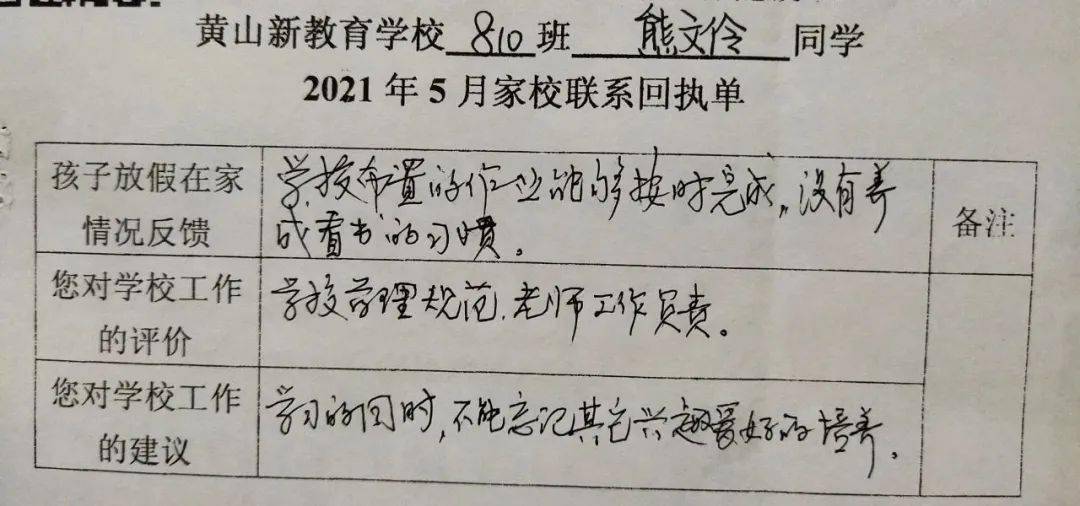 黄山新教育学校 810 班 熊文伶 同学
2021 年 5 月家校联系回执单
孩子放假在家
情况反馈
学校布置的作业能够按时完成,没有养
成看书的习惯。
备注
您对学校工作
的评价
学校管理规范,老师工作负责。
您对学校工作
的建议
学习的同时,不能忘记其它兴趣爱好的培养。